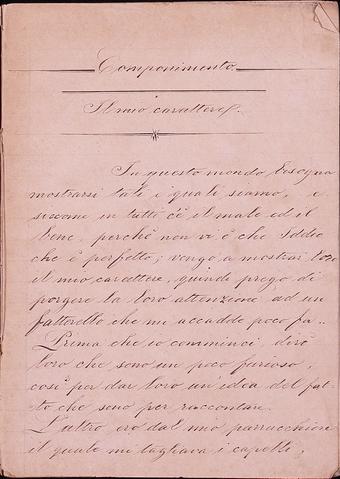 Componimento.
Il mio carattere.
In questo mondo bisogna
mostrarsi tali e quali siamo, e
siccome in tutti c'è il male ed il
bene, perchè non vi è che Iddio
che è perfetto; vengo a mostrar loro
il mio carattere, quindi prego di
porgere la loro attenzione ad un
fatterello che mi accadde poco fa..
Prima che io cominci, dirò
loro che sono un poco furioso,
così per dar loro un idea del fat-
to che sono per raccontare.
L'altro ero dal mio parrucchiere
il quale mi tagliava i capelli,